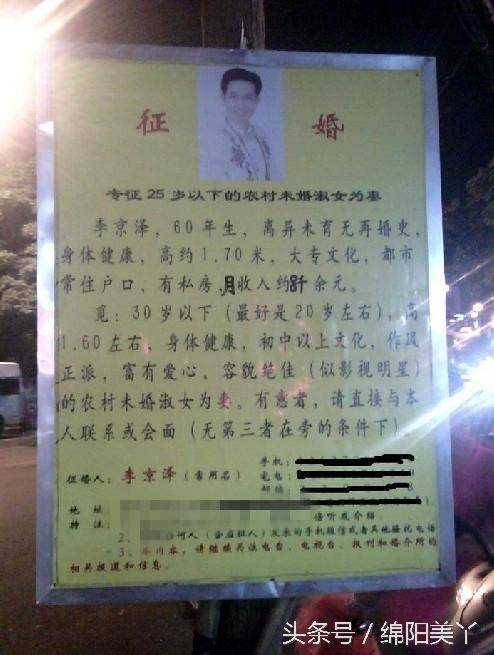 征 婚
专征25岁以下的农村未婚淑女为妻
李京泽，60年生，离异未育无再婚史，
身体健康，高约1.70米，大专文化，都市
常住户口，有私房，月收入约8千余元。
觅：30岁以下（最好是20岁左右），高
1.60左右，身体健康，初中以上文化，作风
正派，富有爱心，容貌绝佳（似影视明星）
的农村未婚淑女为妻。有意者，请直接与本
人联系或会面（无第三者在旁的条件下）。
手机：
征婚人：李京泽（常用名）
邮编：
地址：
特注： 传听或介绍。
2、 何人 发来的手机短信或者其他骚扰电话
3、 内容，请继续关注电台、电视台、报刊和婚介所的
相关报道和信息。
头条号／绵阳美丫